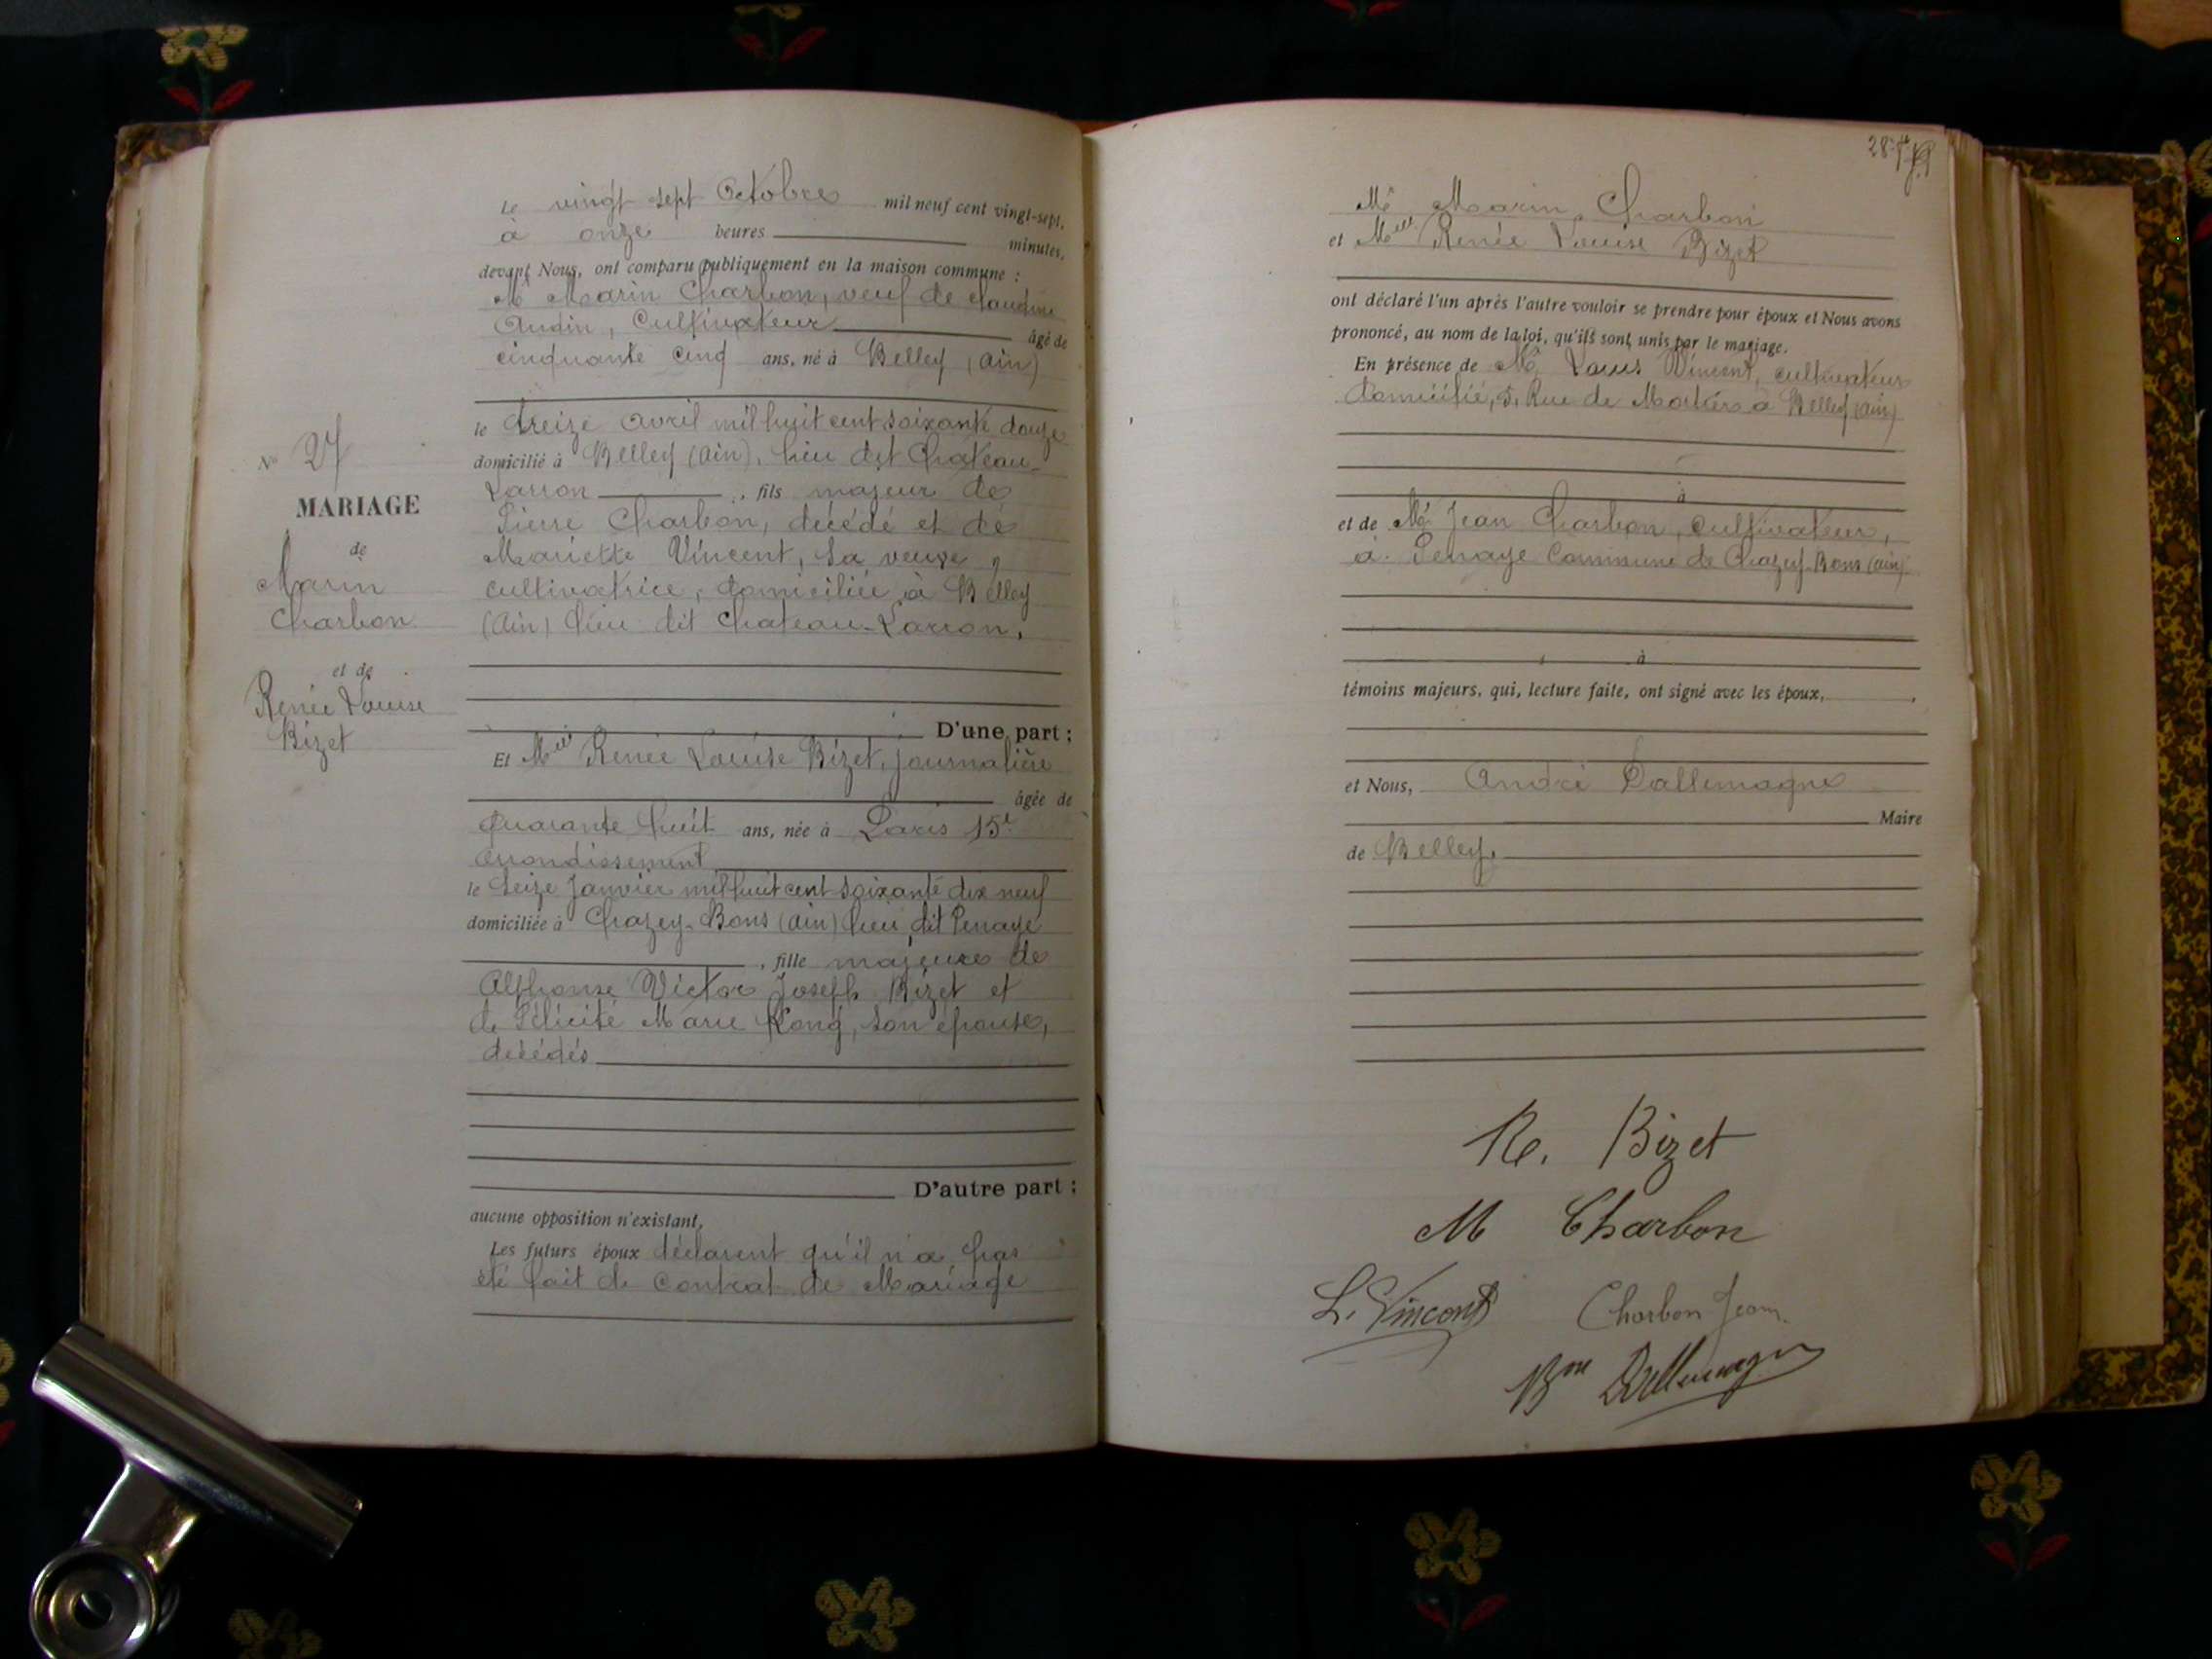 Le vingt sept Octobre mil neuf cent vingt-sept,
à onze heures minutes,
devant Nous, ont comparu publiquement en la maison commune :
Mr Marin Charbon, veuf de Claudine
Audin, Cultivateur âgé de
cinquante cinq ans, né à Belley (Ain)
le treize Avril mil huit cent soixante douze
domicilié à Belley (Ain), lieu dit Château-
Larron, fils majeur de
Pierre Charbon, décédé et de
Mariette Vincent, sa veuve,
cultivatrice, domiciliée à Belley
(Ain) lieu dit Chateau-Larron,
D'une part ;
Et Melle Renée Louise Bizet, journalière
âgée de
Quarante huit ans, née à Paris 15e
arrondissement
le Seize Janvier mil huit cent soixante dix neuf
domiciliée à Chazey-Bons (Ain) lieu dit Penaye
, fille majeure de
Alphonse Victor Joseph Bizet et
de Félicité Marie Long, son épouse,
décédés
D'autre part ;
aucune opposition n'existant,
Les futurs époux déclarent qu'il n'a pas
été fait de Contrat de Mariage
No 27
MARIAGE
de
Marin
Charbon
et de
Renée Louise
Bizet
28
Mr Marin Charbon
et Melle Renée Louise Bizet
ont déclaré l'un après l'autre vouloir se prendre pour époux et Nous avons
prononcé, au nom de la loi, qu'ils sont unis par le mariage.
En présence de Mr Louis Vincent, cultivateur
domicilié, 5, Rue de à Belley (Ain)
à
et de Mr Jean Charbon, Cultivateur,
à Penaye Commune de Chazey-Bons (Ain)
, à
témoins majeurs, qui, lecture faite, ont signé avec les époux, ,
et Nous, André Dallemagne
Maire
de Belley.
Re. Bizet
M Charbon
L. Vincent Charbon Jean
Bon Dallemagne